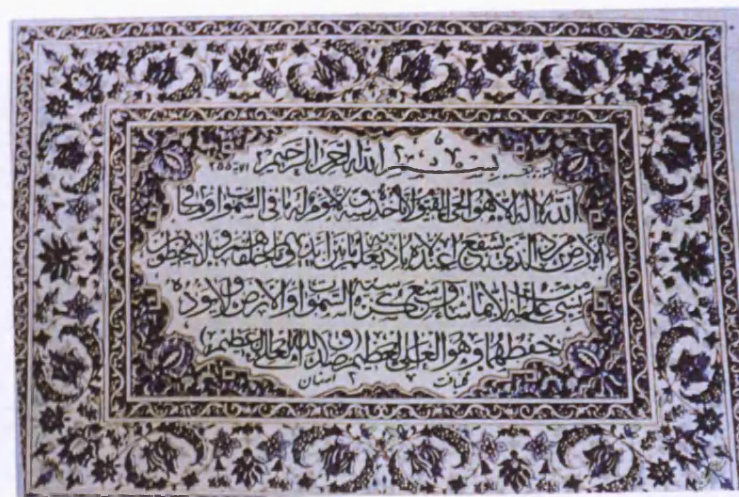 بسم الله الرحمن الرحيم الآية ٢٥٥
الله لا إله إلا هو الحي القيوم لا تأخذه سنة ولا نوم له ما في السموات وما في
الأرض من ذا الذي يشفع عنده إلا بإذنه يعلم ما بين أيديهم وما خلفهم ولا يحيطون
بشيء من علمه إلا بما شاء وسع كرسيه السموات والأرض ولا يؤده
حفظهما وهو العلي العظيم (صدق الله العلي العظيم)